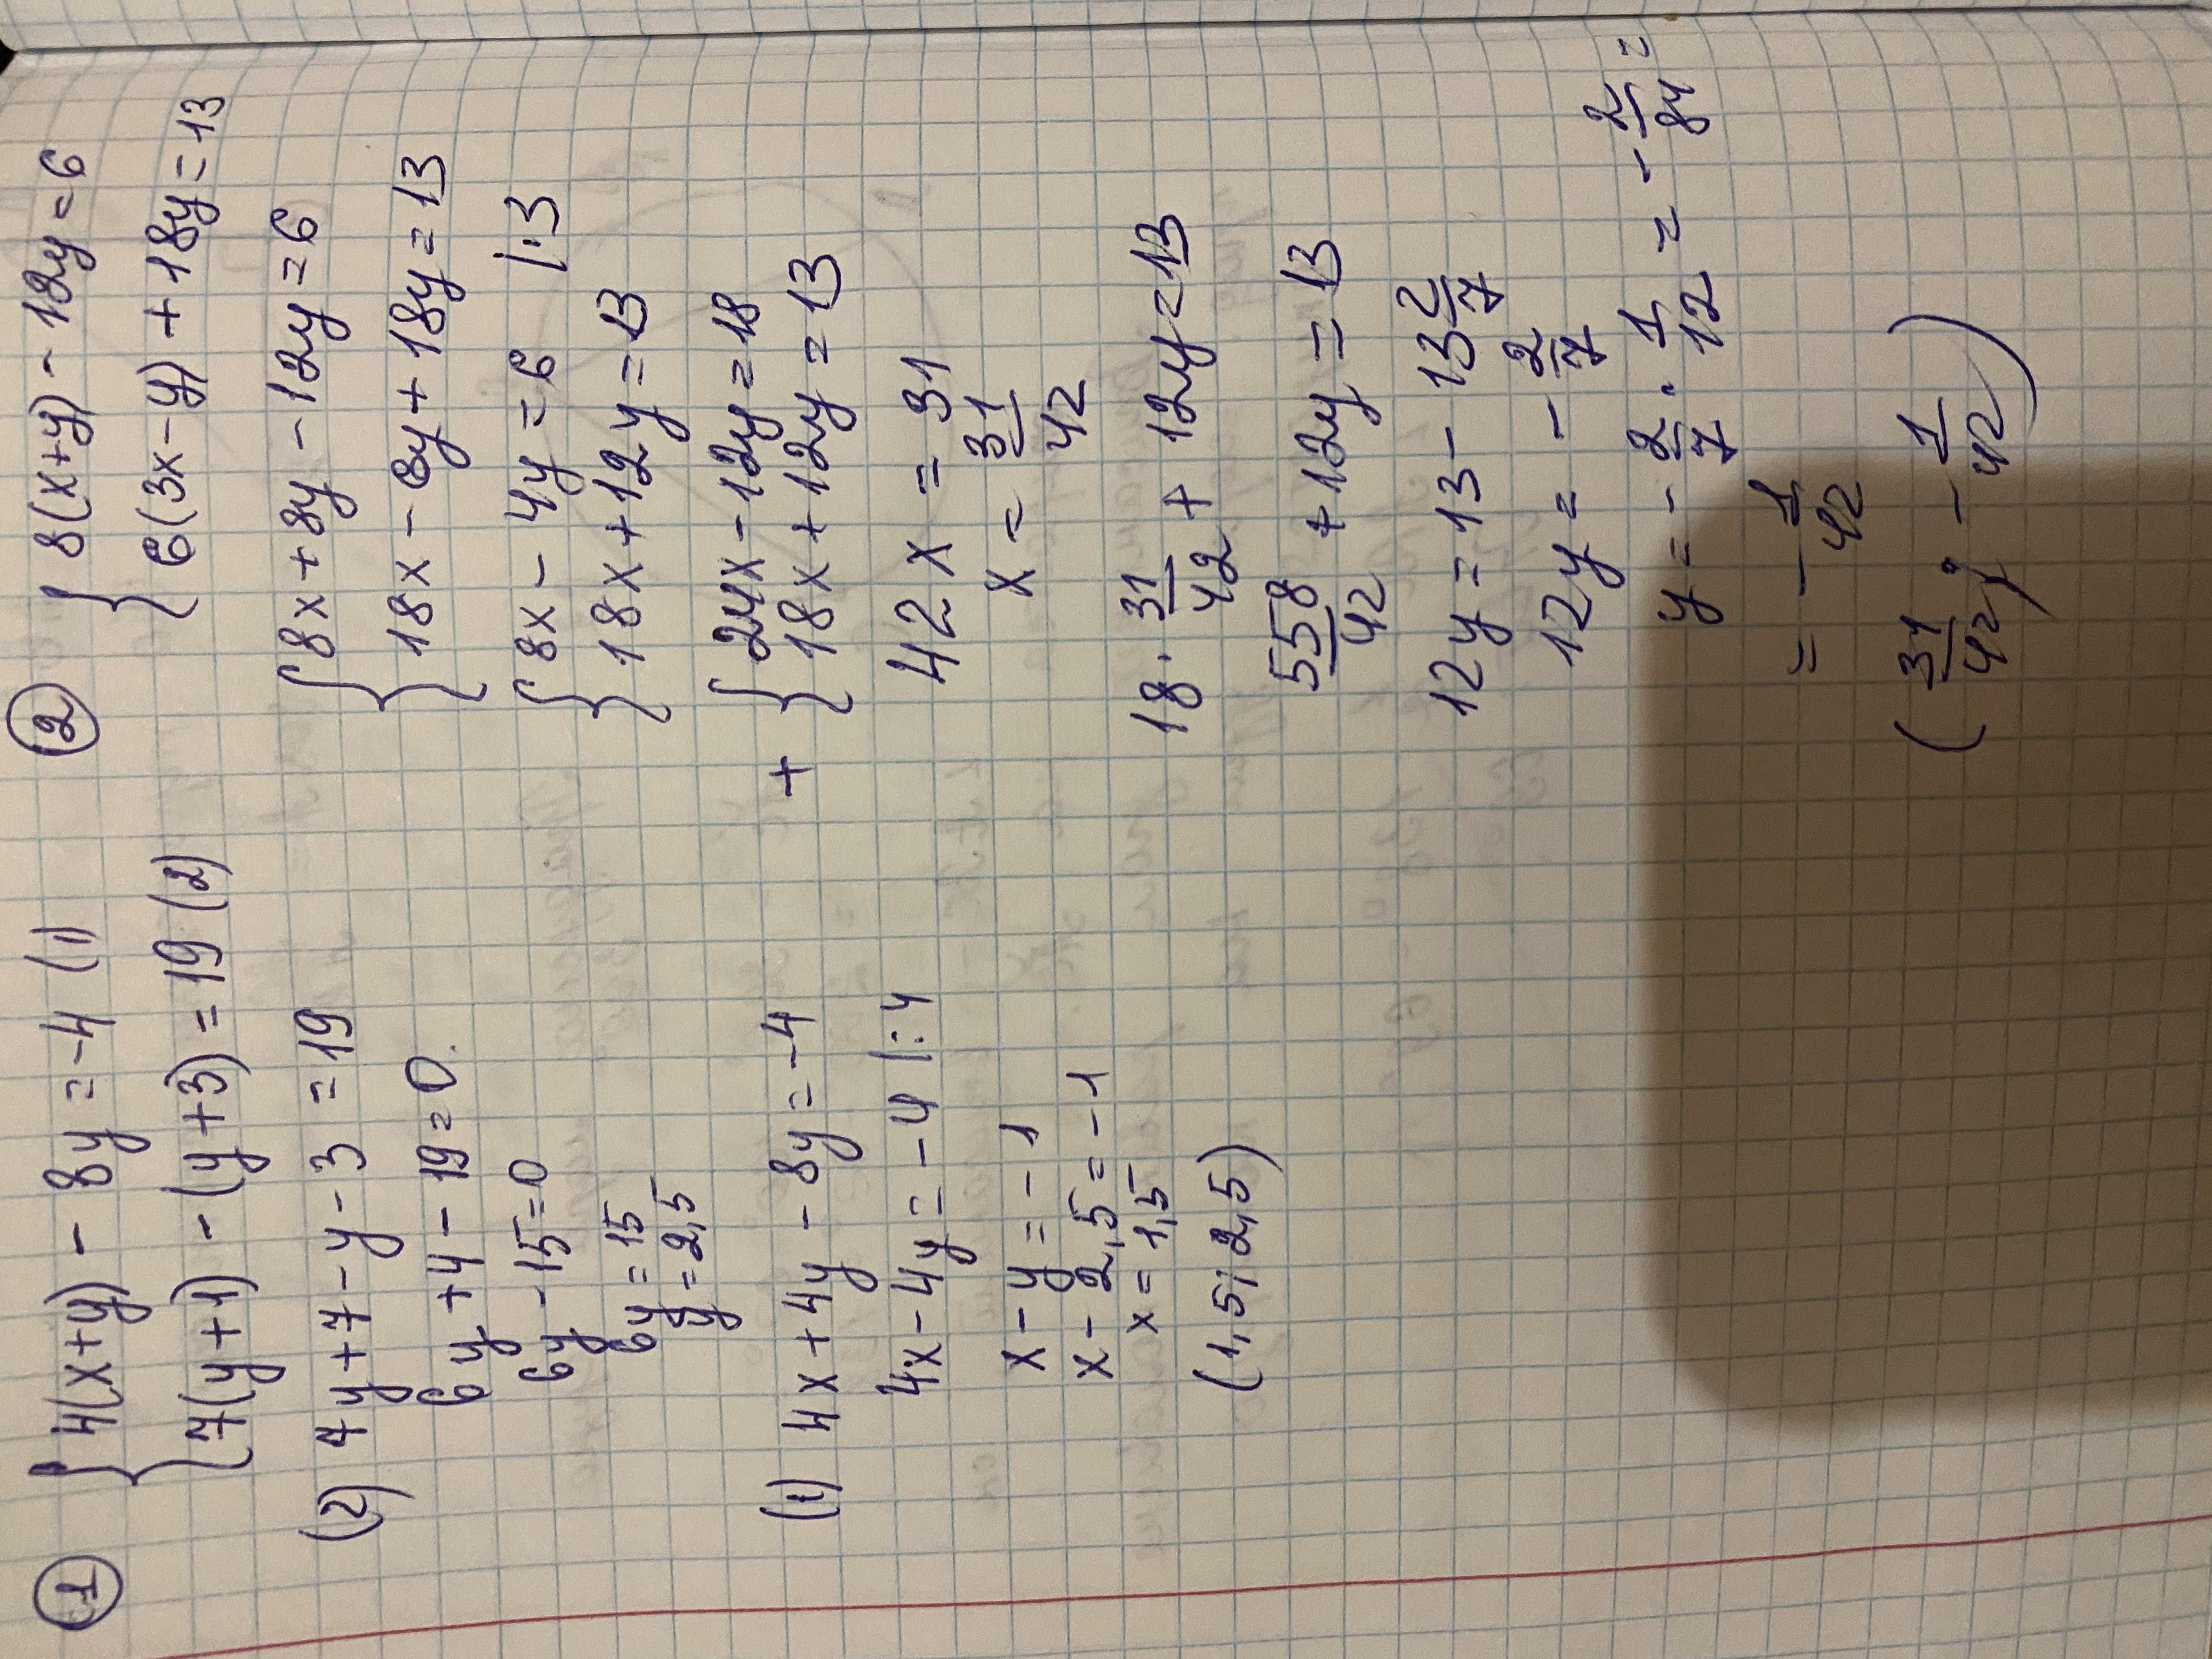 ① { 4(x+y) - 8y = -4 (1)
7(y+1) - (y+3) = 19 (2)
(2) 7y+7-y-3 = 19
6y+4-19=0.
6y-15=0
6y=15
y=2,5
(1) 4x+4y-8y=-4
4x-4y=-4 |:4
x-y=-1
x-2,5=-1
x=1,5
(1,5; 2,5)
② { 8(x+y) - 12y = 6
6(3x-y) + 18y = 13
{ 8x+8y-12y=6
18x-6y+18y=13
{ 8x-4y=6 |·3
18x+12y=13
+ { 24x-12y=18
18x+12y=13
42x = 31
x = 31/42
18·31/42 + 12y=13
558/42 + 12y = 13
12y = 13 - 13 2/7
12y = - 2/7
y = - 2/7 · 1/12 = - 2/84 =
= - 1/42
(31/42; - 1/42)